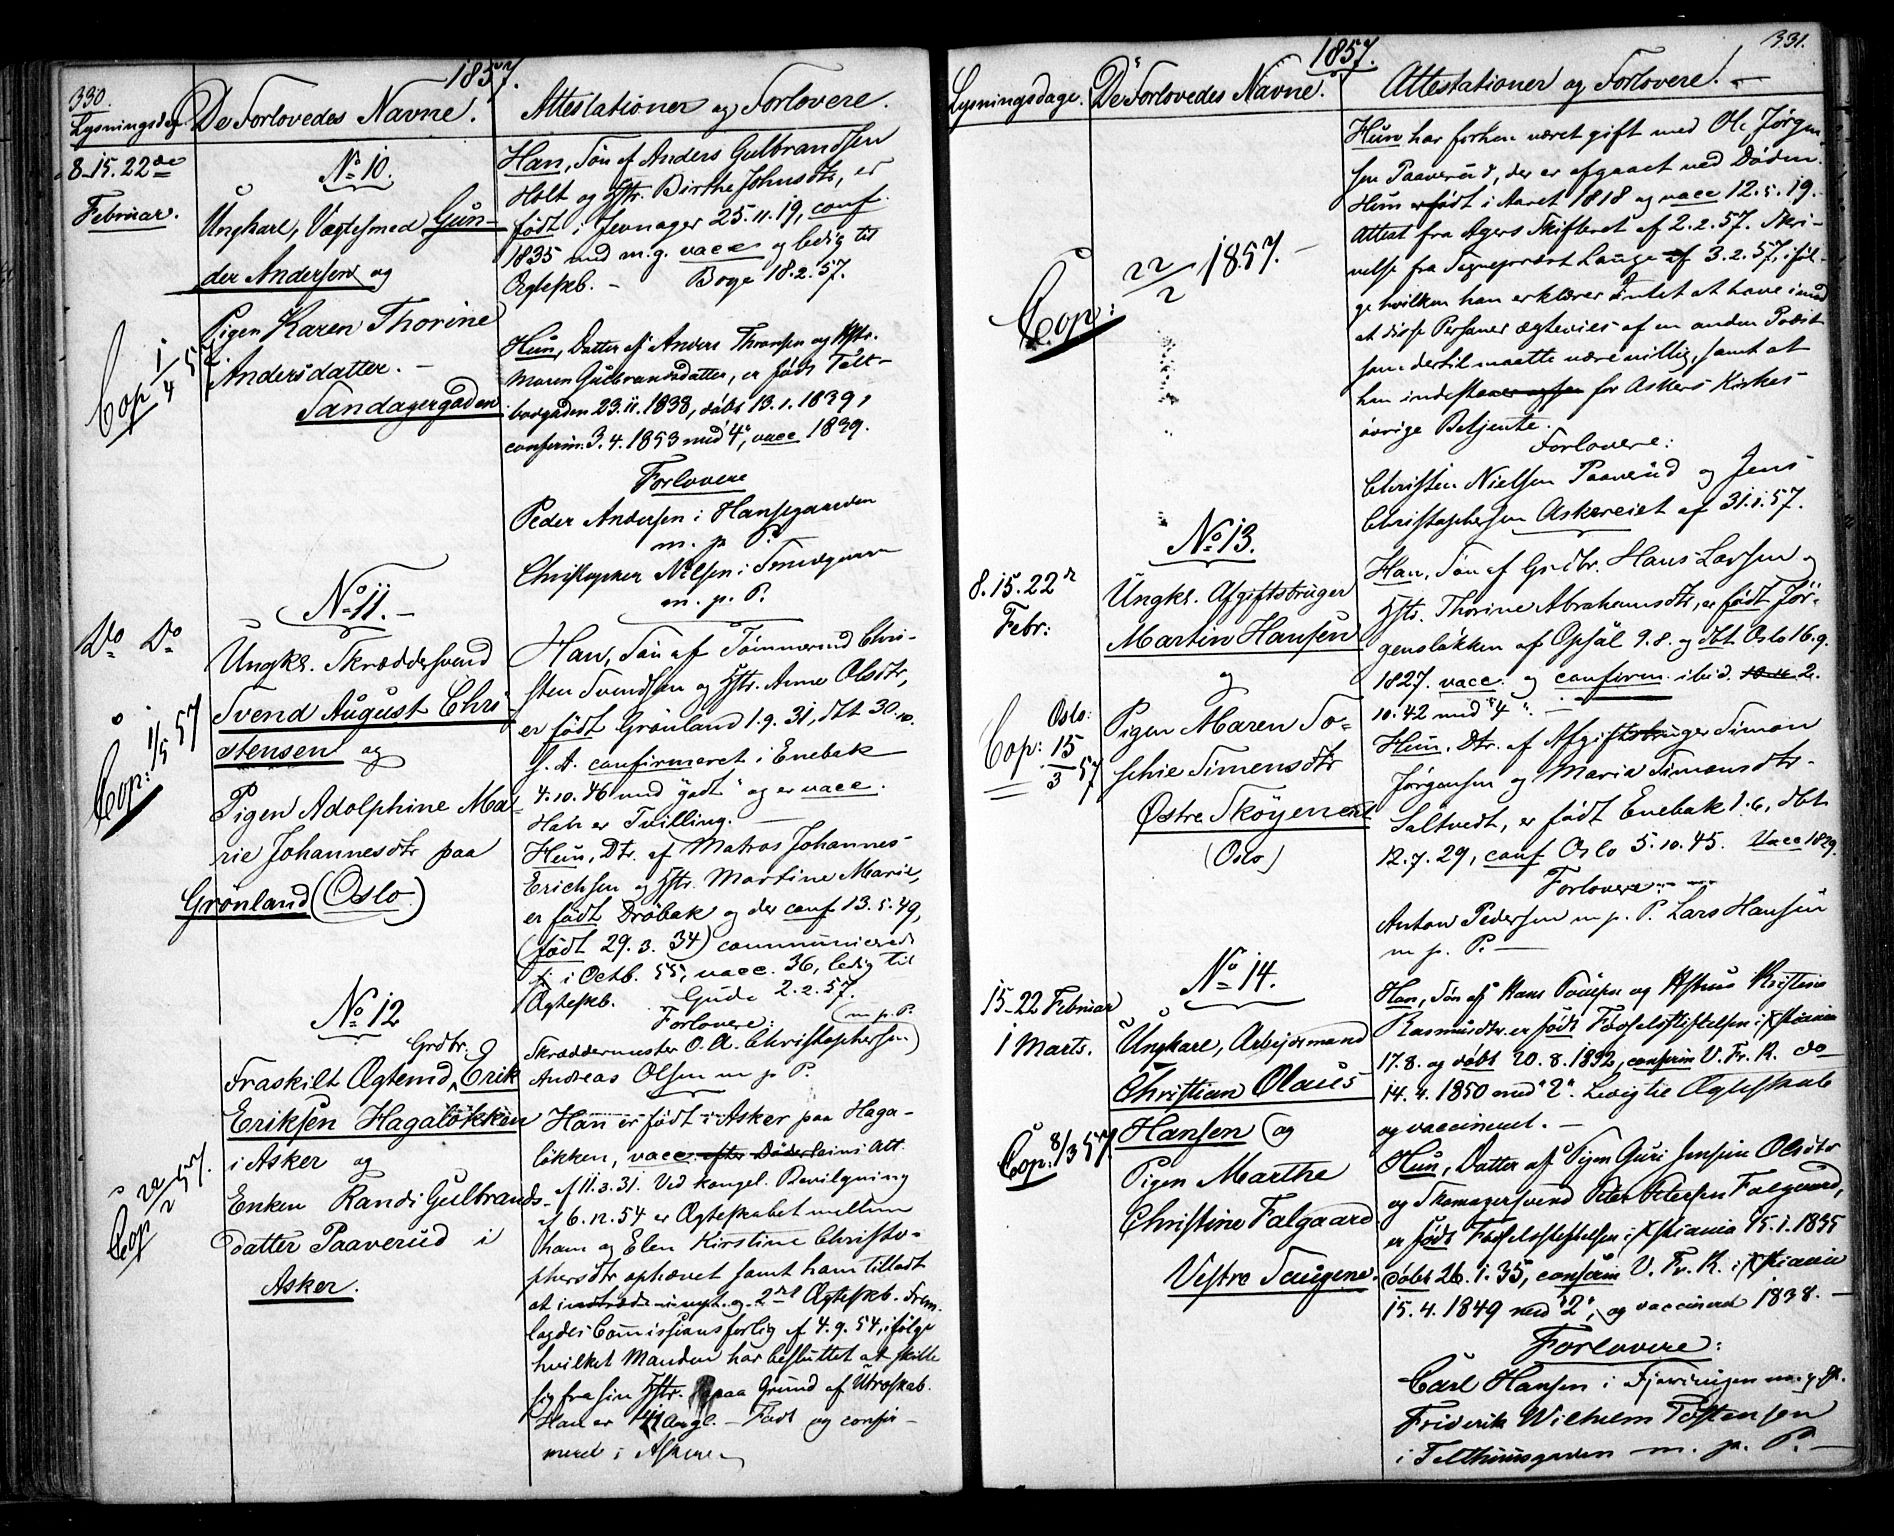 330.
1857.
Lysningsdag. De Forlovedes Navne. Attestationer og Forlovere.
8-15. 22de
Februar.
No 10.
Ungkarl, Vægtesmed Gun-
der Andersen og
Pigen Karen Thorine
Andersdatter. -
Sandagergaden
Cop 1/4 57.
Han, Søn af Anders Gulbrandsen
Holt og Hstr. Birthe Johnsdtr, er
født i Jevnager 25.11.19, conf.
1835 med m.g. vacc og ledig til
Ægteskb. - Boye 18.2.57.
Hun, Datter af Anders Thronsen og Hstr.
Maren Gulbrandsdatter, er født Telt-
busgaden 23.11.1838, døbt 13.1.1839,
confirm. 3.4.1853 med "4", vacc 1839.
Forlovere
Peder Andersen i Hansegaarden
m. p. P.
Christopher Nilsen i
m. p. P.
Do Do
No 11. -
Ungkl. Skræddersvend
Svend August Chri-
stensen og
Pigen Adolphine Ma-
rie Johannesdtr paa
Grønland (Oslo)
Cop: 1/5 57
Han, Søn af Tømmermd Chri-
sten Svendsen og Hstr. Anne Olsdtr,
er født Grønland 1.9.31, dbt 30.10.
s. A. confirmeret i Enebak
4.10.46 med "godt" og er vacc.
Han er Tvilling. -
Hun, Dtr. af Matros Johannes
Erichsen og Hstr. Martine Marie,
er født Drøbak og der conf 13.5.49,
(født 29.3.34) communicerede
i Octb. 55, vacc. 36, ledig til
Ægteskb. Gude 2.2.57.
Forlovere: (m. p. P.
Skræddermester O. A. Christophersen)
Andreas Olsen m p P.
No 12
Grdbr.
Fraskilt Ægtemd, Erik
Eriksen Hagaløkken
i Asker og
Enken Randi Gulbrands-
datter Paaverud i
Asker.
Cop 22/2 57.
Han er født i Asker paa Haga-
løkken, vacc. efter Døderleins Att.
af 11.3.31. Ved kongel. Bevilgning
af 6.12.54 er Ægteskabet mellem
ham og Elen Kirstine Christo-
phersdtr ophævet samt ham tilladt
at indtræde i nyt og 2det Ægteskb. Frem-
lagdes Comissionsforlig af 4.9.54, ifølge
hvilket Manden har besluttet at skille
sig fra sin Hstr. paa Grund af Utroskab.
Han er Angl. - Født og confir-
meret i Asker
331.
1857.
Lysningsdage. De Forlovedes Navne. Attestationer og Forlovere. -
Cop: 22/2 1857. -
Hun har forhen været gift med Ole Jørgen-
sen Paaverud, der er afgaaet ved Døden.
Hun er født i Aaret 1818 og vacc 12.5.19.
Attest fra Agers Skifteret af 2.2.57. Skri-
velse fra Sognepræst Lange af 3.2.57, iføl-
ge hvilken han erklærer Intet at have imod
at disse Personer ægtevies af en anden Præst
som dertil maatte være villig, samt at
han indestaaer for Askers Kirkes
øvrige Betjente.
Forlovere:
Christen Nielsen Paaverud og Jens
Christophersen Askereiet af 31.1.57.
8. 15. 22r
Febr:
No 13.
Ungkl. Afgiftsbruger
Martin Hansen
og
Pigen Maren So-
phie Simensdtr
Østre Skøyeneiet
(Oslo)
Oslo:
Cop: 15/3 57
Han, Søn af Grdbr. Hans Larsen og
Hstr. Thorine Abrahamsdtr, er født Jør-
gensløkken af Opsal 9.8. og dbt. Oslo 16.9.
1827. vacc. og confirm. ibid. 2.
10.42 med "4". -
Hun, Dtr. af Afgiftsbruger Simon
Jørgensen og Maria Simonsdtr.
Saltvedt, er født Enebak 1.6, dbt
12.7.29, conf Oslo 5.10.45. Vacc 1829.
Forlovere: -
Anton Pedersen m p. P. Lars Hansen
m p. P. -
15-22 Februar
1 Marts.
No 14.
Ungkarl, Arbejdsmand
Christian Olaus
Hansen og
Pigen Marthe
Christine Falgaard
Vestre Saugene.
Cop: 8/3 57.
Han, Søn af Hans Poulsen og Hstrus Kristine
Rasmusdtr. er født Fødselsstiftelsen i Xstiania
17.8. og døbt 20.8.1832, confirm V. Fr. K. do
14.4.1850 med "2". Ledig til Ægteskab
og vaccineret. -
Hun, Datter af Pigen Guri Jensine Olsdtr
og Skomagersvend Peter Petersen Falgaard,
er født Fødselsstiftelsen i Xstiania 15.1.1835
døbt 26.1.35, confirm V. Fr. K. i Xstiania
15.4.1849 med "2", og vaccineret 1838. -
Forlovere:
Carl Hansen i Fjerdingen m. p. P.
Friderik Wilhelm Tostensen
i Telthuusgaden m. p. P. -